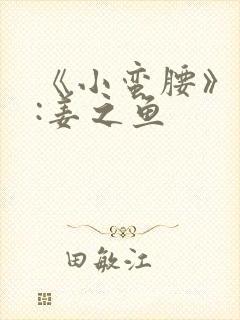 《小蛮腰》
:姜之鱼
田敏江